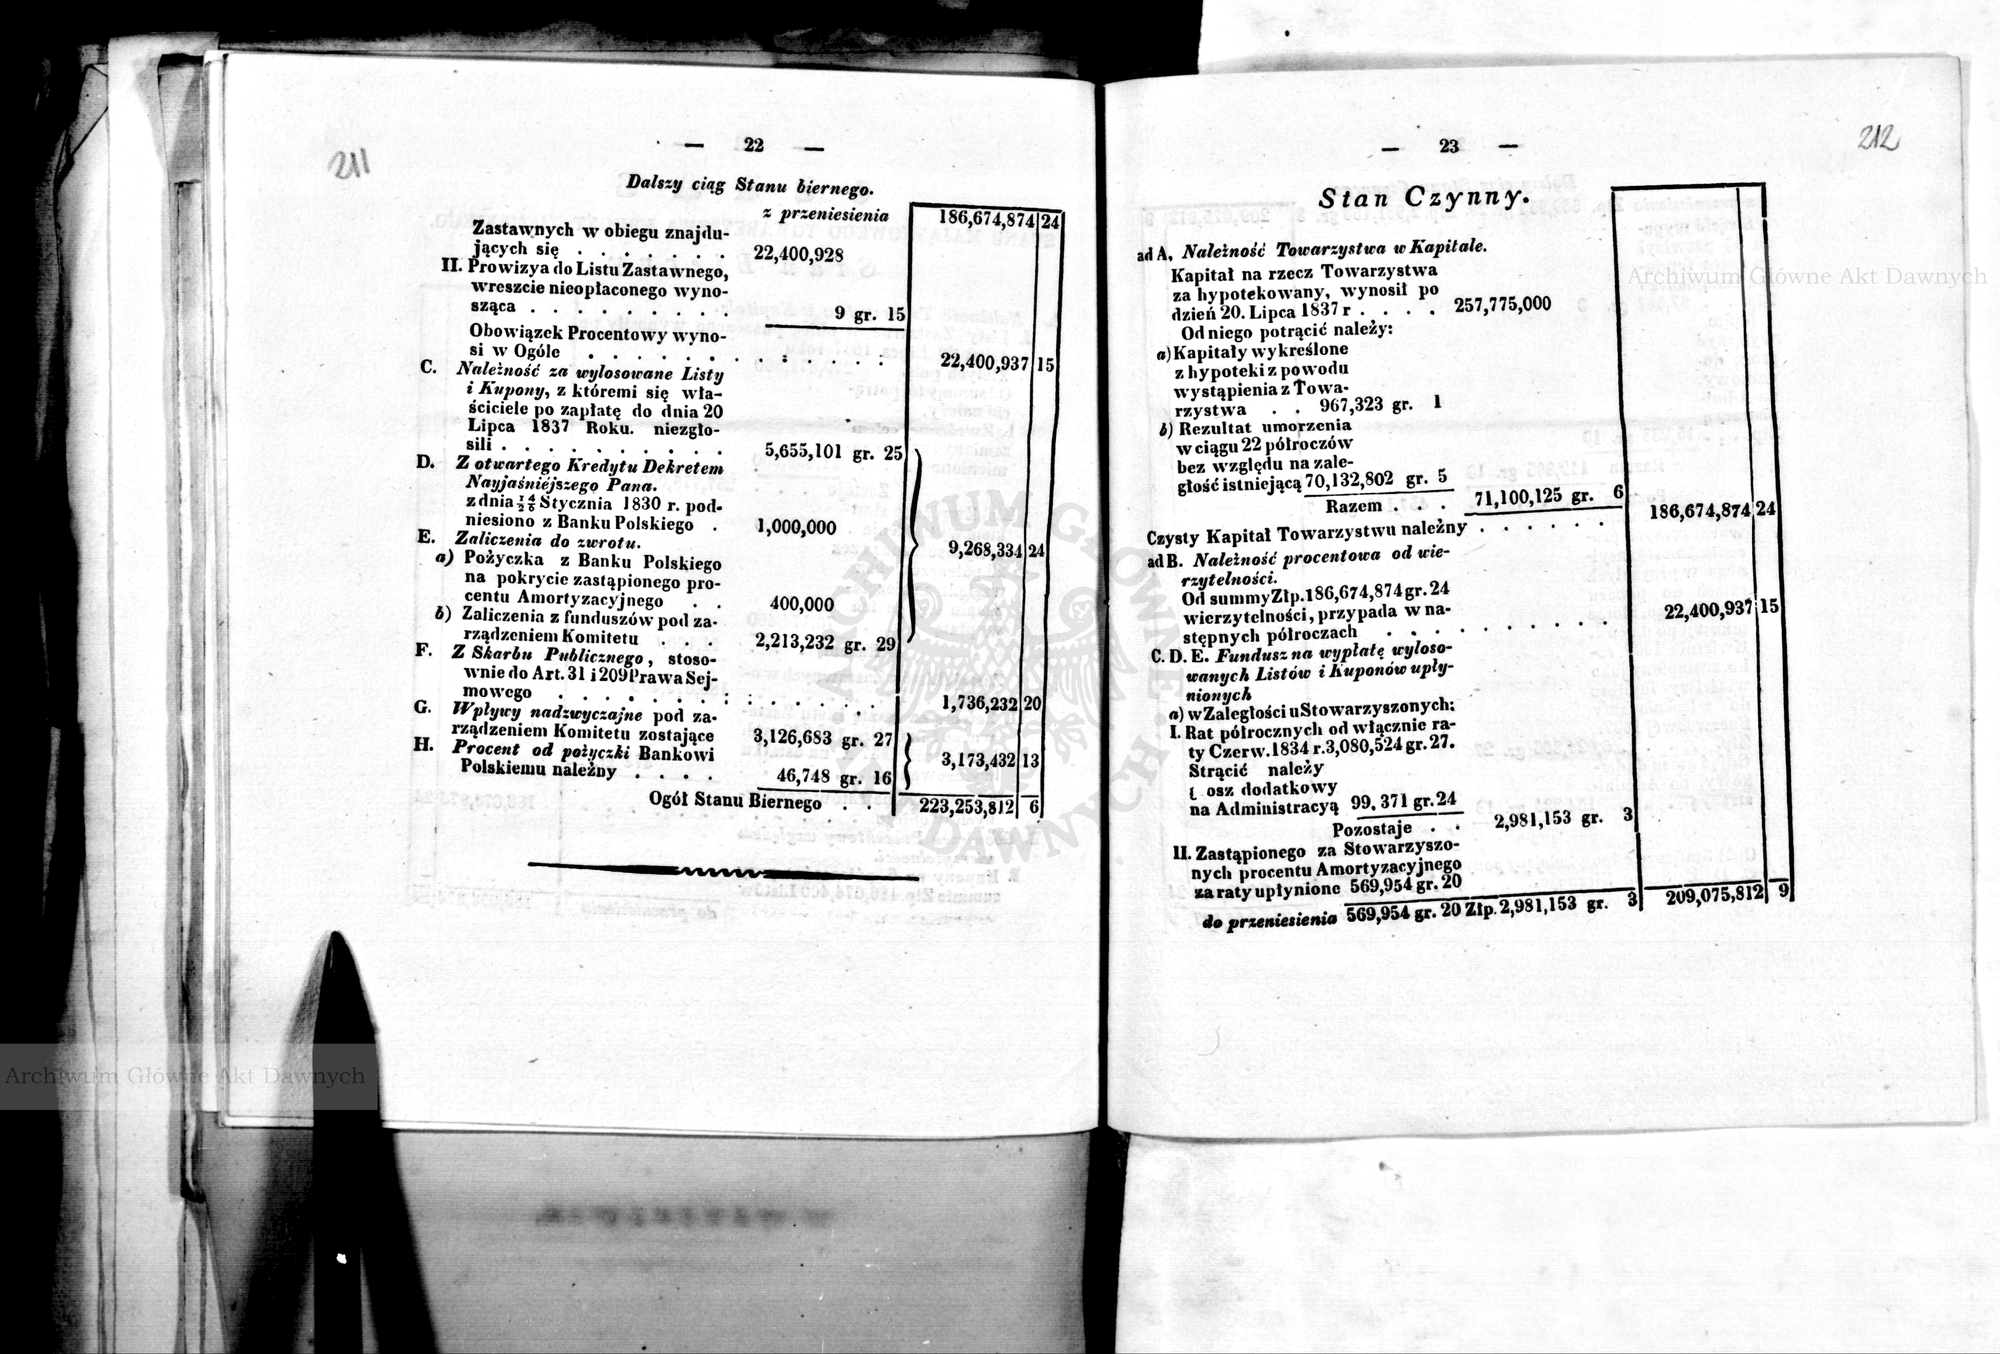 211
— 22 —
Dalszy ciąg Stanu biernego.
z przeniesienia 186,674,874 24
Zastawnych w obiegu znajdu-
jących się . . . . . . . 22,400,928
II. Prowizya do Listu Zastawnego,
wreszcie nieopłaconego wyno-
sząca . . . . . . . . . 9 gr. 15
Obowiązek Procentowy wyno-
si w Ogóle . . . . . . . . . . . . 22,400,937 15
C. Należność za wylosowane Listy
i Kupony, z któremi się wła-
ściciele po zapłatę do dnia 20
Lipca 1837 Roku. niezgło-
sili . . . . . . . . . . 5,655,101 gr. 25
D. Z otwartego Kredytu Dekretem
Nayjaśniejszego Pana.
z dnia 14/26 Stycznia 1830 r. pod-
niesiono z Banku Polskiego . 1,000,000
E. Zaliczenia do zwrotu. 9,268,334 24
a) Pożyczka z Banku Polskiego
na pokrycie zastąpionego pro-
centu Amortyzacyjnego . . 400,000
b) Zaliczenia z funduszów pod za-
rządzeniem Komitetu . . . 2,213,232 gr. 29
F. Z Skarbu Publicznego, stoso-
wnie do Art. 31 i 209 Prawa Sej-
mowego . . . . . . . . . . . . . . 1,736,232 20
G. Wpływy nadzwyczajne pod za-
rządzeniem Komitetu zostające 3,126,683 gr. 27
H. Procent od pożyczki Bankowi 3,173,432 13
Polskiemu należny . . . . 46,748 gr. 16
Ogół Stanu Biernego . . 223,253,812 6
212
— 23 —
Stan Czynny.
ad A, Należność Towarzystwa w Kapitale.
Kapitał na rzecz Towarzystwa
za hypotekowany, wynosił po
dzień 20. Lipca 1837 r . . . . 257,775,000
Od niego potrącić należy:
a) Kapitały wykreślone
z hypoteki z powodu
wystąpienia z Towa-
rzystwa . . 967,323 gr. 1
b) Rezultat umorzenia
w ciągu 22 półroczów
bez względu na zale-
głość istniejącą 70,132,802 gr. 5
Razem . . . 71,100,125 gr. 6
Czysty Kapitał Towarzystwu należny . . . . . . 186,674,874 24
ad B. Należność procentowa od wie-
rzytelności.
Od summy Złp. 186,674,874 gr. 24
wierzytelności, przypada w na-
stępnych półroczach . . . . . . . . . . 22,400,937 15
C. D. E. Fundusz na wypłatę wyloso-
wanych Listów i Kuponów upły-
nionych
a) w Zaległości u Stowarzyszonych:
I. Rat półrocznych od włącznie ra-
ty Czerw. 1834 r. 3,080,524 gr. 27.
Strącić należy
osz dodatkowy
na Administracyą 99,371 gr. 24
Pozostaje . . 2,981,153 gr. 3
II. Zastąpionego za Stowarzyszo-
nych procentu Amortyzacyjnego
za raty upłynione 569,954 gr. 20
do przeniesienia 569,954 gr. 20 Złp. 2,981,153 gr. 3 209,075,812 9
Archiwum Główne Akt Dawnych
Archiwum Główne Akt Dawnych
ARCHIWUM GŁÓWNE AKT DAWNYCH